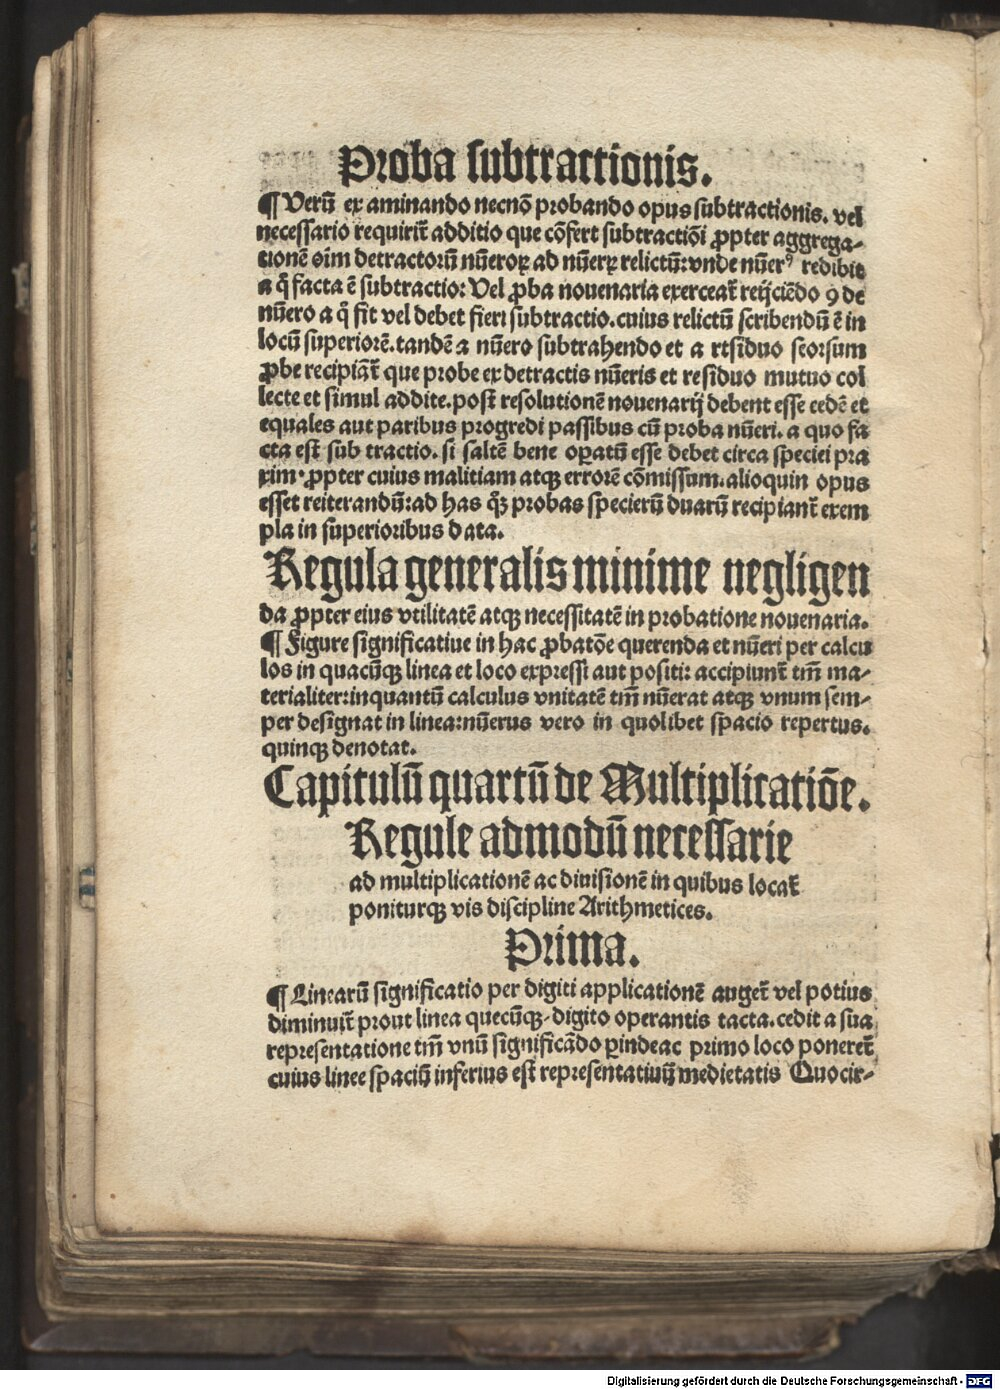 Proba subtractionis.
¶ Verū ex aminando necnō probando opus subtractionis. vel
necessario requirit᷑ additio que cōfert subtractiōi ꝓpter aggrega-
tionē oīm detractorū nūeroꝝ ad nūerꝝ relictū: vnde nūerꝰ redibit
a q̄ facta ē subtractio: Vel ꝓba nouenaria exerceat᷑ reijciēdo 9 de
nūero a q̄ fit vel debet fieri subtractio. cuius relictū scribendū ē in
locū superiorē. tandē a nūero subtrahendo et a rtsiduo seorsum
ꝓbe recipiāt᷑ que probe ex detractis nūeris et residuo mutuo col
lecte et simul addite. post resolutionē nouenarij debent esse eedē et
equales aut paribus progredi passibus cū proba nūeri. a quo fa
cta est sub tractio. si saltē bene oꝑatū esse debet circa speciei pra
xim. ꝓpter cuius malitiam atqꝫ errorē cōmissum. alioquin opus
esset reiterandū: ad has qͦꝫ probas specierū duarū recipiant᷑ exem
pla in superioribus data.
Regula generalis minime negligen
da ꝓpter eius vtilitatē atqꝫ necessitatē in probatione nouenaria.
¶ Figure significatiue in hac ꝓbatōe querenda et nūeri per calcu
los in quacūqꝫ linea et loco expressi aut positi: accipiunt᷑ tm̄ ma-
terialiter: inquantū calculus vnitatē tm̄ nūerat atqꝫ vnum sem-
per designat in linea: nūerus vero in quolibet spacio repertus.
quinqꝫ denotat.
Capitulū quartū de Multiplicatiōe.
Regule admodū necessarie
ad multiplicationē ac diuisionē in quibus locat᷑
poniturqꝫ vis discipline Arithmetices.
Prima.
¶ Linearū significatio per digiti applicationē auget᷑ vel potius
diminuit᷑ prout linea quecūqꝫ digito operantis tacta. cedit a sua
representatione tm̄ vnū significādo ꝑindeac primo loco poneret᷑
cuius linee spaciū inferius est representatiuū medietatis Quocir-
Digitalisierung gefördert durch die Deutsche Forschungsgemeinschaft - DFG